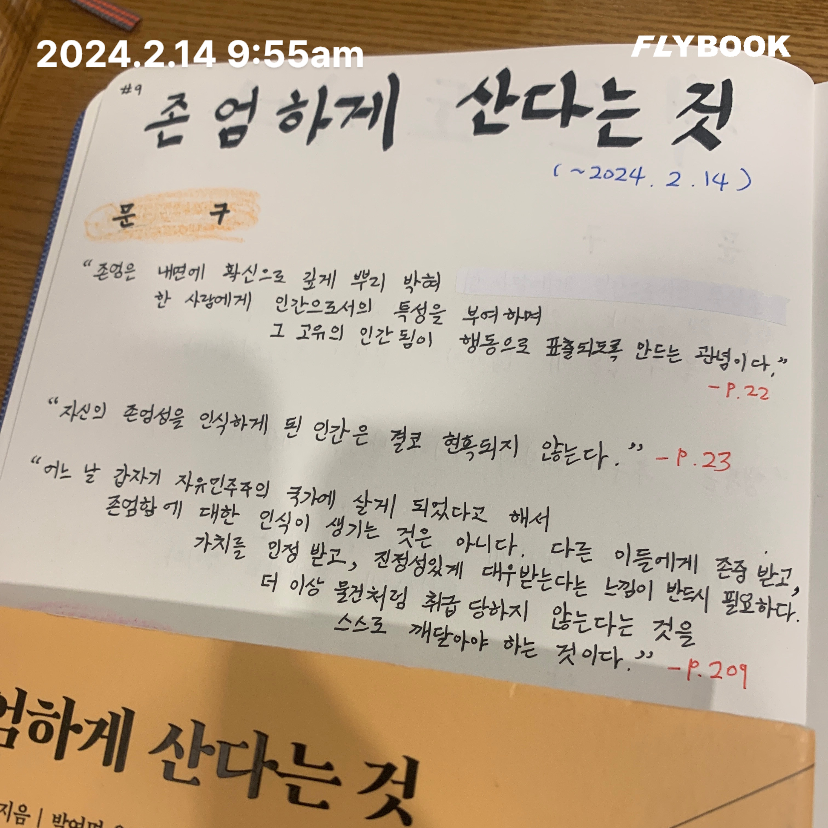 2024.2.14 9:55am
FLYBOOK
#9
존엄하게 산다는 것
(~2024. 2. 14)
문 구
“존엄은 내면에 확신으로 깊게 뿌리 박혀
한 사람에게 인간으로서의 특성을 부여하며
그 고유의 인간됨이 행동으로 표출되도록 만드는 관념이다.”
-P.22
“자신의 존엄성을 인식하게 된 인간은 결코 현혹되지 않는다.” -P.23
“어느 날 갑자기 자유민주주의 국가에 살게 되었다고 해서
존엄함에 대한 인식이 생기는 것은 아니다. 다른 이들에게 존중 받고,
가치를 인정 받고, 진정성있게 대우받는다는 느낌이 반드시 필요하다.
더 이상 물건처럼 취급 당하지 않는다는 것을
스스로 깨달아야 하는 것이다.” -P.209
엄하게 산다는 것
지음 | 박여명